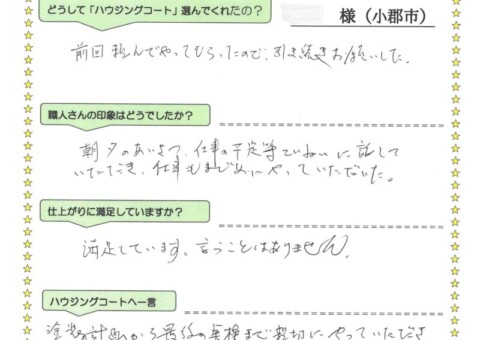 どうして「ハウジングコート」選んでくれたの？
様（小郡市）
前回 頼んでやってもらったので、引き続きお願いした。
職人さんの印象はどうでしたか？
朝夕のあいさつ、仕事の予定等ていねいに話して
いただき、仕事もまじめにやっていただいた。
仕上がりに満足していますか？
満足しています。言うことはありません。
ハウジングコートへ一言
塗装計画から最後の点検まで親切にやっていただき